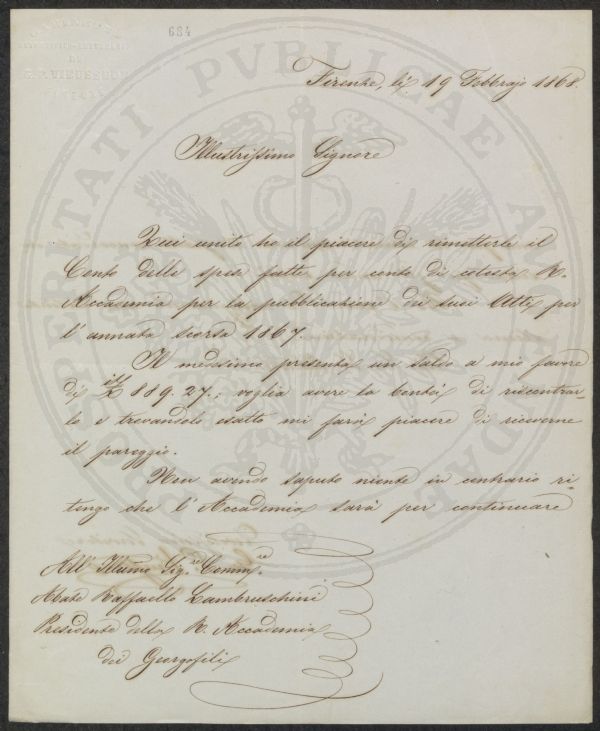 684
G. P. VIEUSSEUX
PROSPERITATI PVBLICAE AVGENDAE
Firenze, li 19 Febbrajo 1868.
Illustrissimo Signore
Qui unito ho il piacere di rimetterle il
Conto delle spese fatte per conto di cotesta R.
Accademia per la pubblicazione dei suoi Atti per
l'annata scorsa 1867.
Il medesimo presenta un saldo a mio favore
di it £ 889.27.; voglia avere la bontà di riscontrar-
lo e trovandolo esatto mi farà piacere di riceverne
il pareggio.
Non avendo saputo niente in contrario ri-
tengo che l'Accademia sarà per continuare
All' Illumo Sig.re Comm.re
Abate Raffaello Lambruschini
Presidente della R. Accademia
dei Georgofili